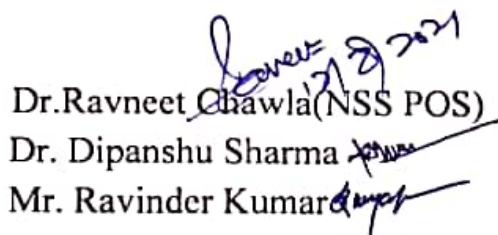 Dr.Ravneet Chawla(NSS POS)
Dr. Dipanshu Sharma
Mr. Ravinder Kumar